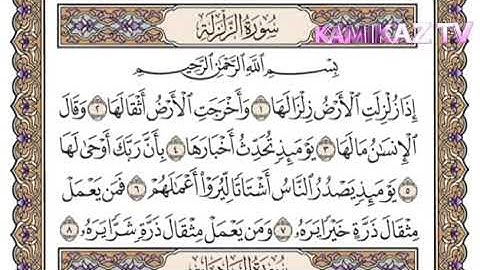 سُورَةُ الزَّلْزَلَةِ
KAMIKAZ TV
بِسْمِ اللَّهِ الرَّحْمَٰنِ الرَّحِيمِ
إِذَا زُلْزِلَتِ الْأَرْضُ زِلْزَالَهَا ١ وَأَخْرَجَتِ الْأَرْضُ أَثْقَالَهَا ٢ وَقَالَ
الْإِنسَانُ مَا لَهَا ٣ يَوْمَئِذٍ تُحَدِّثُ أَخْبَارَهَا ٤ بِأَنَّ رَبَّكَ أَوْحَىٰ لَهَا
٥ يَوْمَئِذٍ يَصْدُرُ النَّاسُ أَشْتَاتًا لِّيُرَوْا أَعْمَالَهُمْ ٦ فَمَن يَعْمَلْ
مِثْقَالَ ذَرَّةٍ خَيْرًا يَرَهُ ٧ وَمَن يَعْمَلْ مِثْقَالَ ذَرَّةٍ شَرًّا يَرَهُ ٨
سُورَةُ الْعَادِيَاتِ